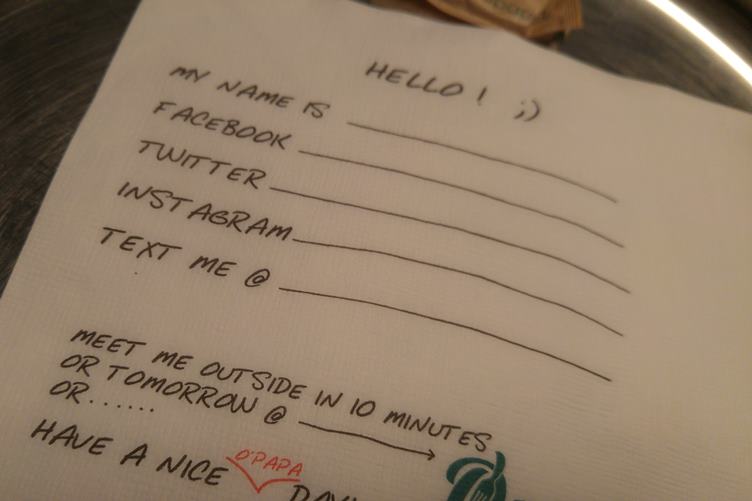 HELLO! ;)
MY NAME IS
FACEBOOK
TWITTER
INSTAGRAM
TEXT ME @
MEET ME OUTSIDE IN 10 MINUTES
OR TOMORROW @
OR......
HAVE A NICE O'PAPA DAY!